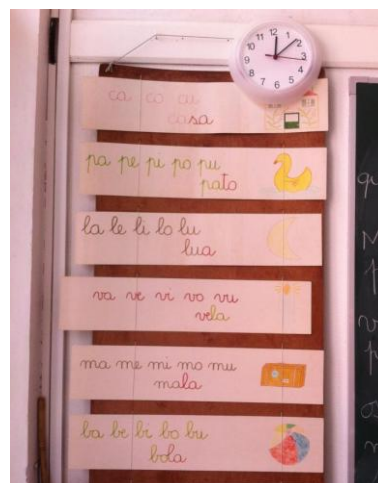 12
1
2
3
4
5
6
7
8
9
10
11
ca co cu
casa
pa pe pi po pu
pato
la le li lo lu
lua
va ve vi vo vu
vela
ma me mi mo mu
mala
ba be bi bo bu
bola